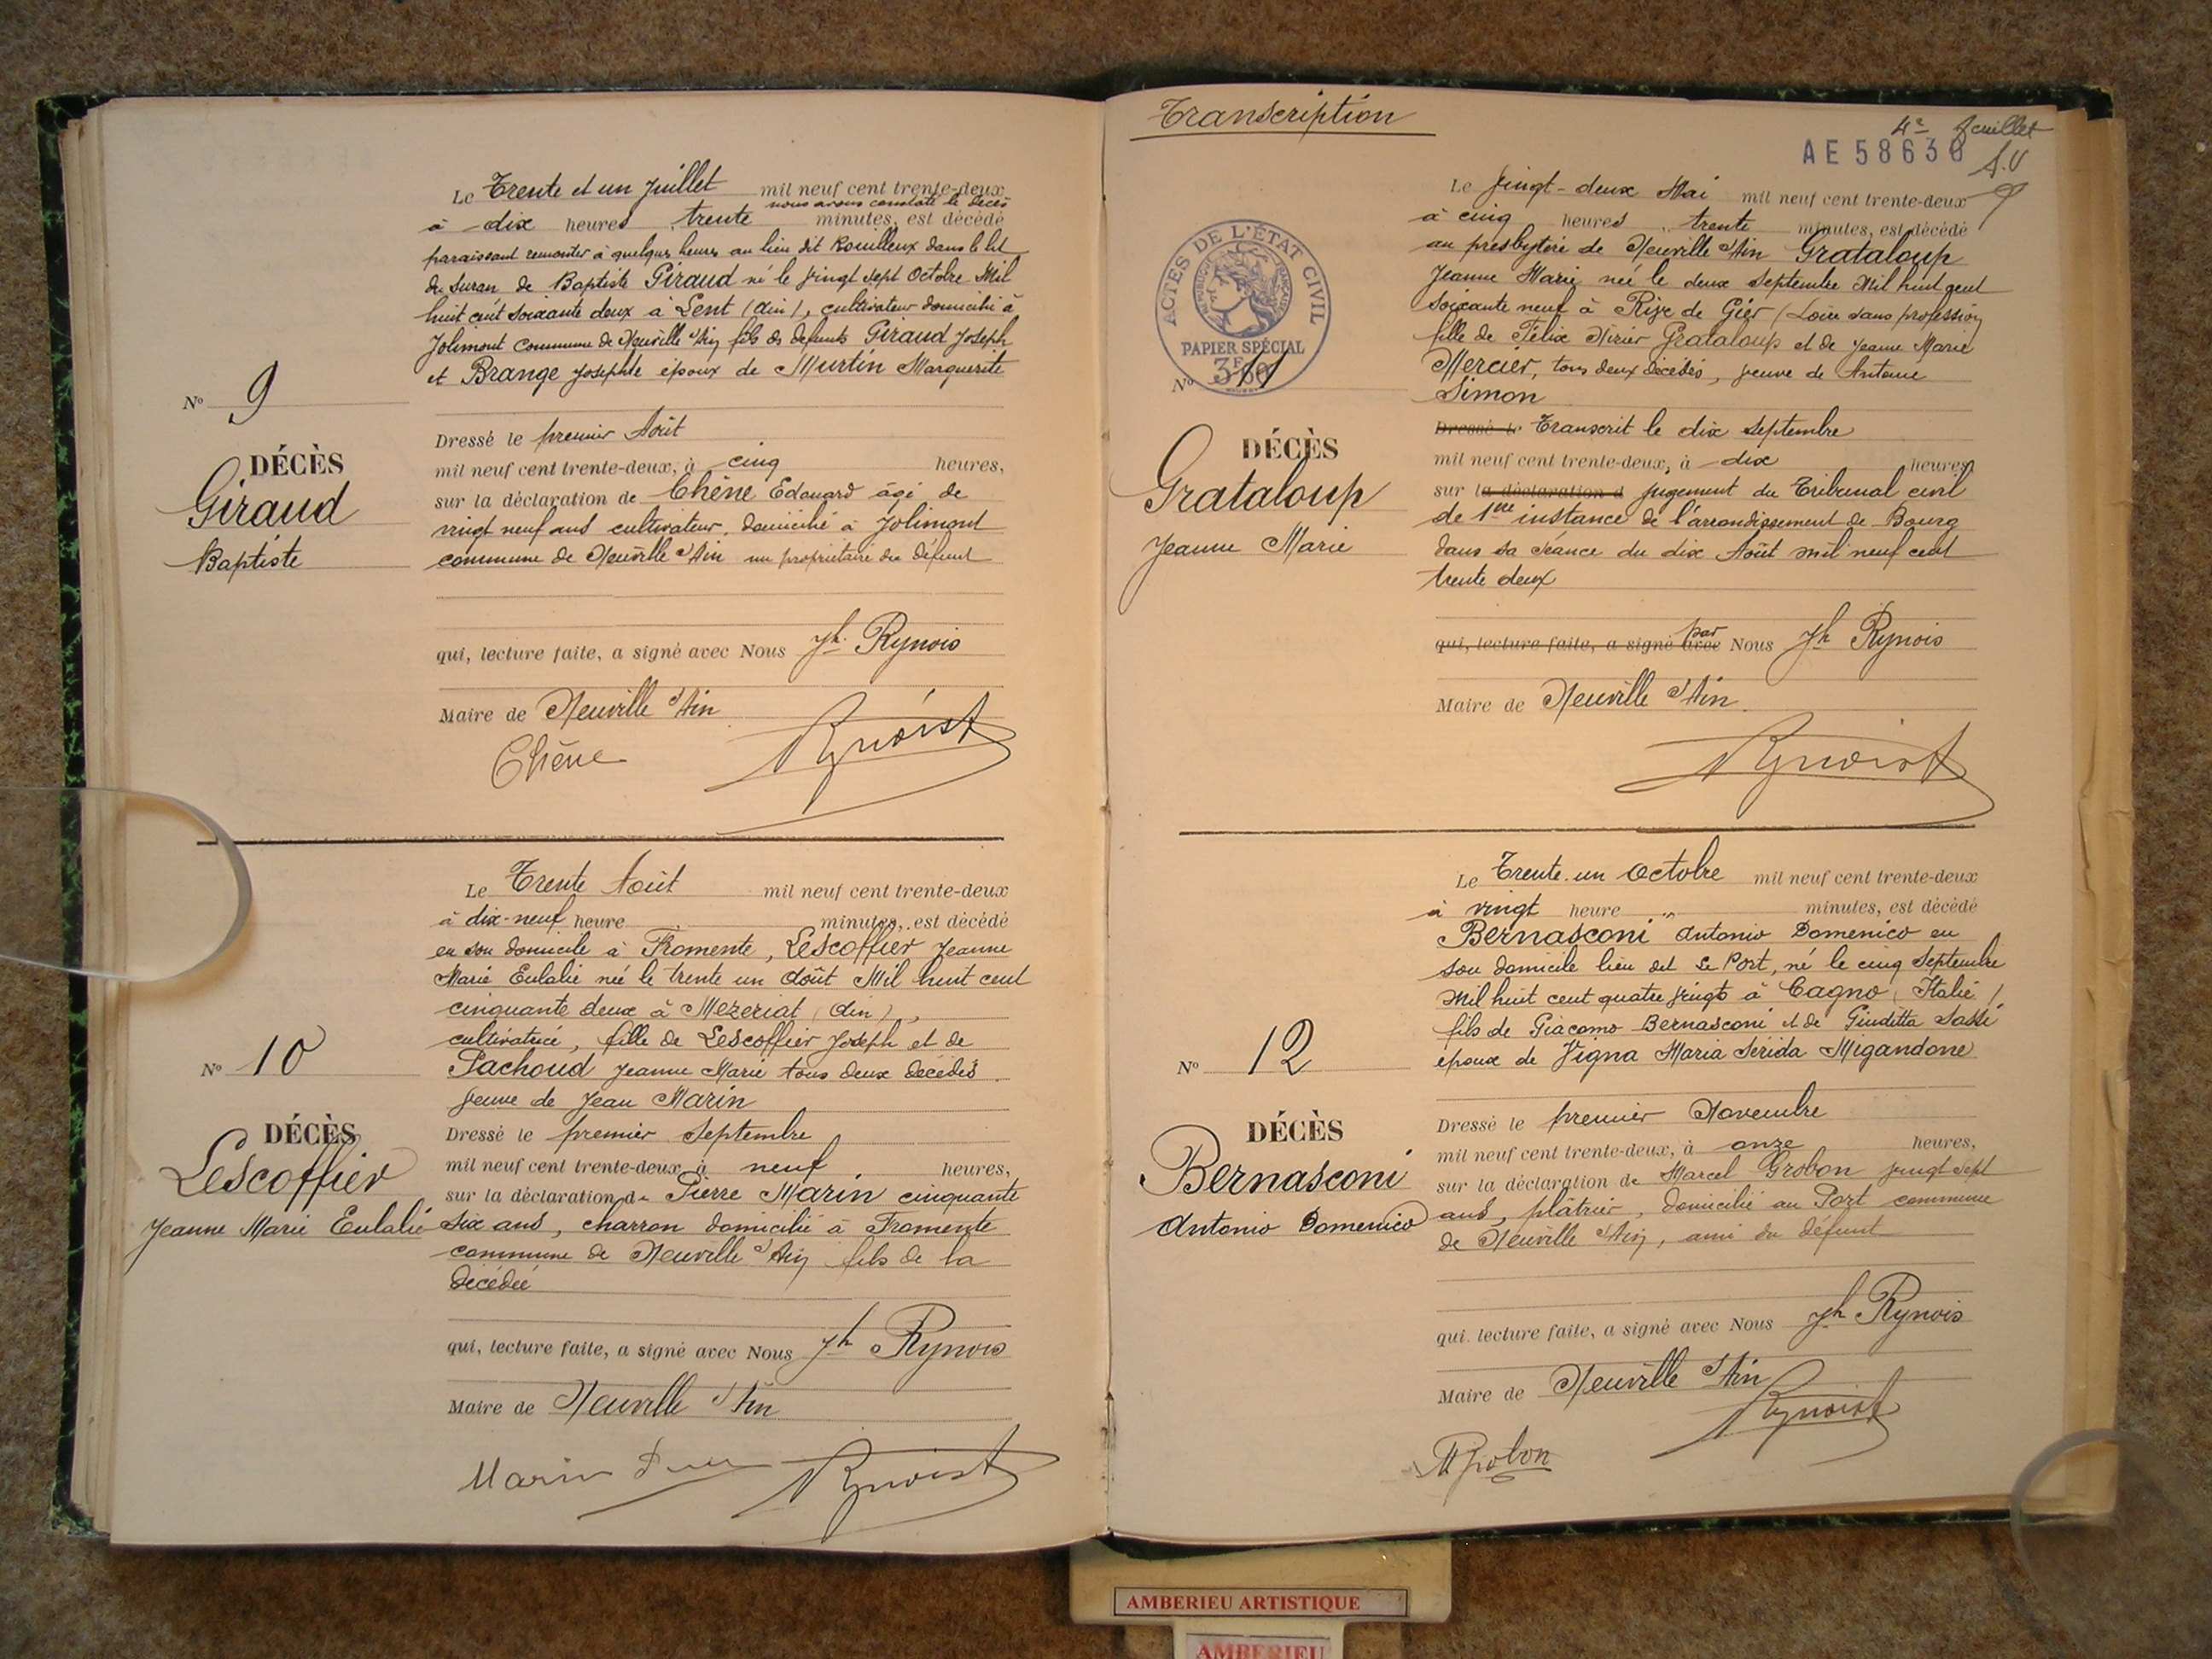 Le Trente et un Juillet mil neuf cent trente-deux
nous avons constaté le décès
à dix heures trente minutes, est décédé
paraissant remonter à quelques heures au lieu dit Rouilleux dans le lit
du Suran de Baptiste Giraud né le vingt sept Octobre Mil
huit cent soixante deux à Lent (Ain), cultivateur domicilié à
Jolimont commune de Neuville s/Ain fils de défunts Giraud Joseph
et Brange Josephte époux de Murtin Marguerite
N° 9
DÉCÈS
Giraud
Baptiste
Dressé le premier Août
mil neuf cent trente-deux, à cinq heures,
sur la déclaration de Chêne Edouard âgé de
vingt neuf ans cultivateur, domicilié à Jolimont
commune de Neuville s/Ain un propriétaire du défunt
qui, lecture faite, a signé avec Nous Jh Rynois
Maire de Neuville s/Ain
Chêne
Le Trente Août mil neuf cent trente-deux
à dix-neuf heure minutes, est décédé
en son domicile à Fromente, Lescoffier Jeanne
Marie Eulalie née le trente un Août Mil huit cent
cinquante deux à Mezeriat (Ain),
cultivatrice, fille de Lescoffier Joseph et de
Pachoud Jeanne Marie tous deux décédés
veuve de Jean Marin
N° 10
DÉCÈS
Lescoffier
Jeanne Marie Eulalie
Dressé le premier Septembre
mil neuf cent trente-deux à neuf heures,
sur la déclaration de Pierre Marin cinquante
six ans, charron domicilié à Fromente
commune de Neuville s/Ain fils de la
décédée
qui, lecture faite, a signé avec Nous Jh Rynois
Maire de Neuville s/Ain
Marin
Transcription
4e feuillet
AE 58630
Le vingt-deux Mai mil neuf cent trente-deux
à cinq heures trente minutes, est décédé
au presbytère de Neuville s/Ain Grataloup
Jeanne Marie née le deux Septembre Mil huit cent
soixante neuf à Rive de Gier (Loire sans profession
fille de Félix Nirier Grataloup et de Jeanne Marie
Mercier, tous deux décédés, veuve de Antoine
Simon
ACTES DE L'ÉTAT CIVIL
RÉPUBLIQUE FRANÇAISE
PAPIER SPÉCIAL
3F60
N° 11
DÉCÈS
Grataloup
Jeanne Marie
Dressé le Transcrit le dix Septembre
mil neuf cent trente-deux, à dix heures,
sur la déclaration d jugement du Tribunal civil
de 1ère instance de l'arrondissement de Bourg
dans sa séance du dix Août mil neuf cent
trente deux
qui, lecture faite, a signé avec par Nous Jh Rynois
Maire de Neuville s/Ain
Le Trente-un Octobre mil neuf cent trente-deux
à vingt heure " minutes, est décédé
Bernasconi Antonio Domenico en
son domicile lieu dit Le Port, né le cinq Septembre
Mil huit cent quatre vingts à Cagno (Italie)
fils de Giacomo Bernasconi et de Giuditta Sassi
époux de Vigna Maria Serida Migandone
N° 12
DÉCÈS
Bernasconi
Antonio Domenico
Dressé le premier Novembre
mil neuf cent trente-deux, à onze heures,
sur la déclaration de Marcel Grobon vingt sept
ans, plâtrier, domicilié au Port commune
de Neuville s/Ain, ami du défunt
qui, lecture faite, a signé avec Nous Jh Rynois
Maire de Neuville s/Ain
MGrobon
AMBERIEU ARTISTIQUE
AMBERIEU